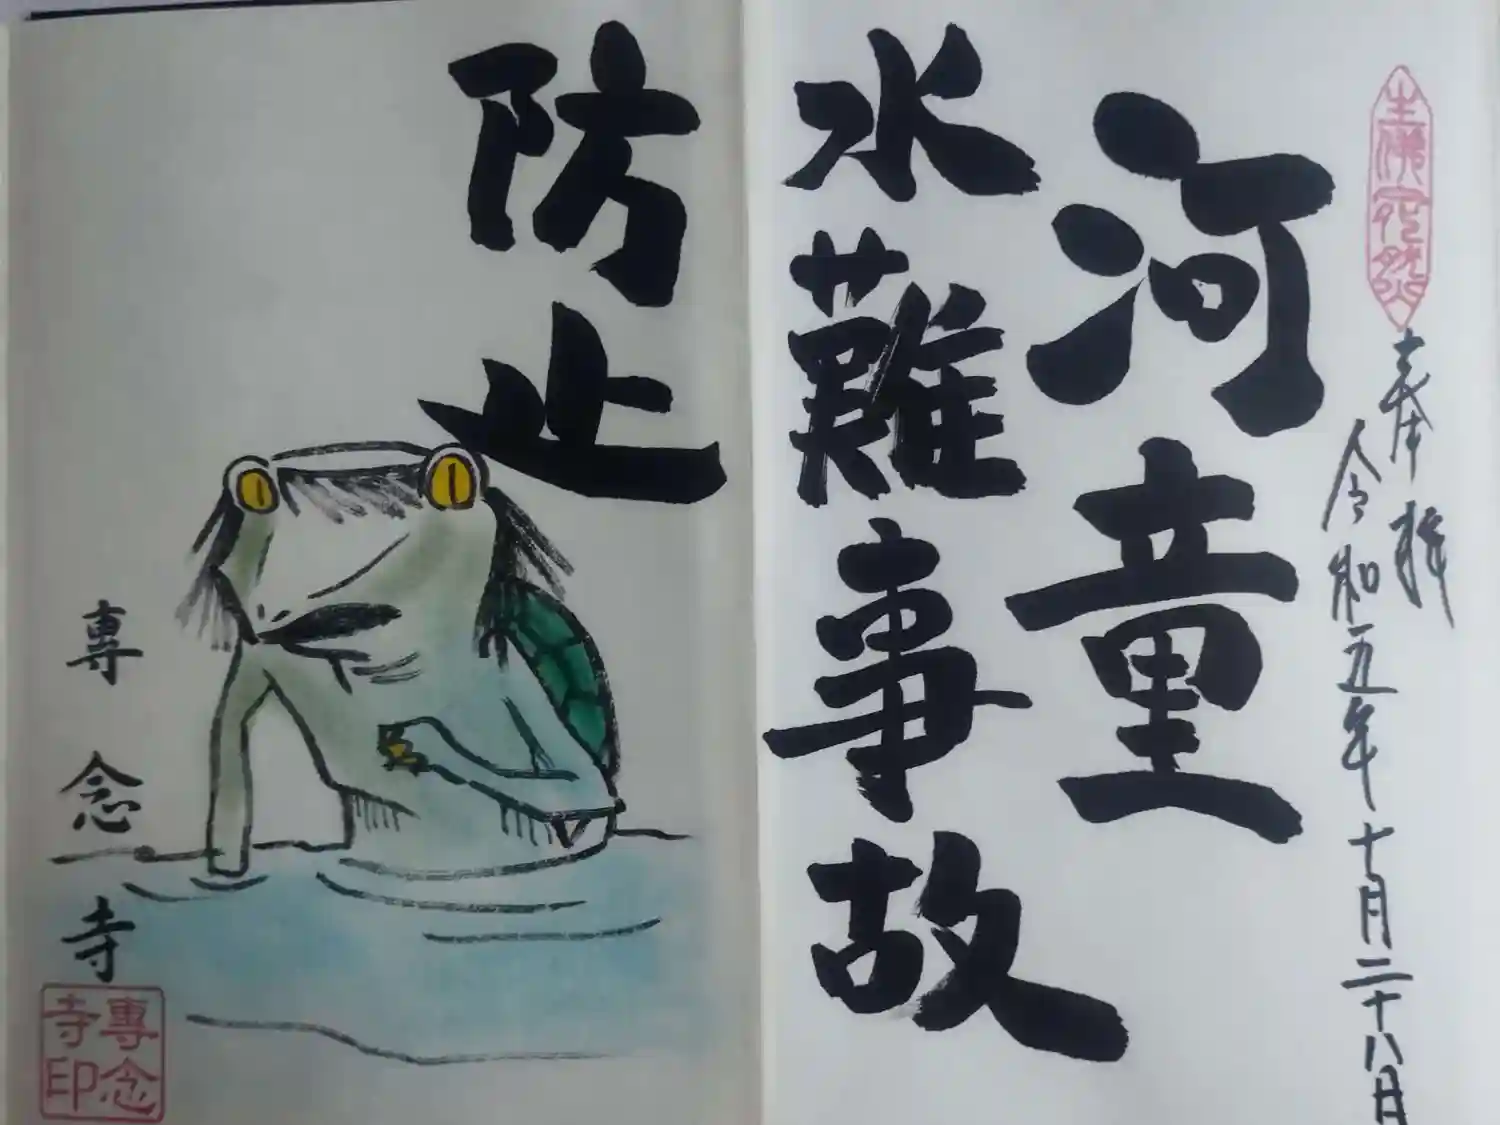 奉拝
令和五年十月二十八日
河童
水難事故
防止
専念寺
専念
寺印